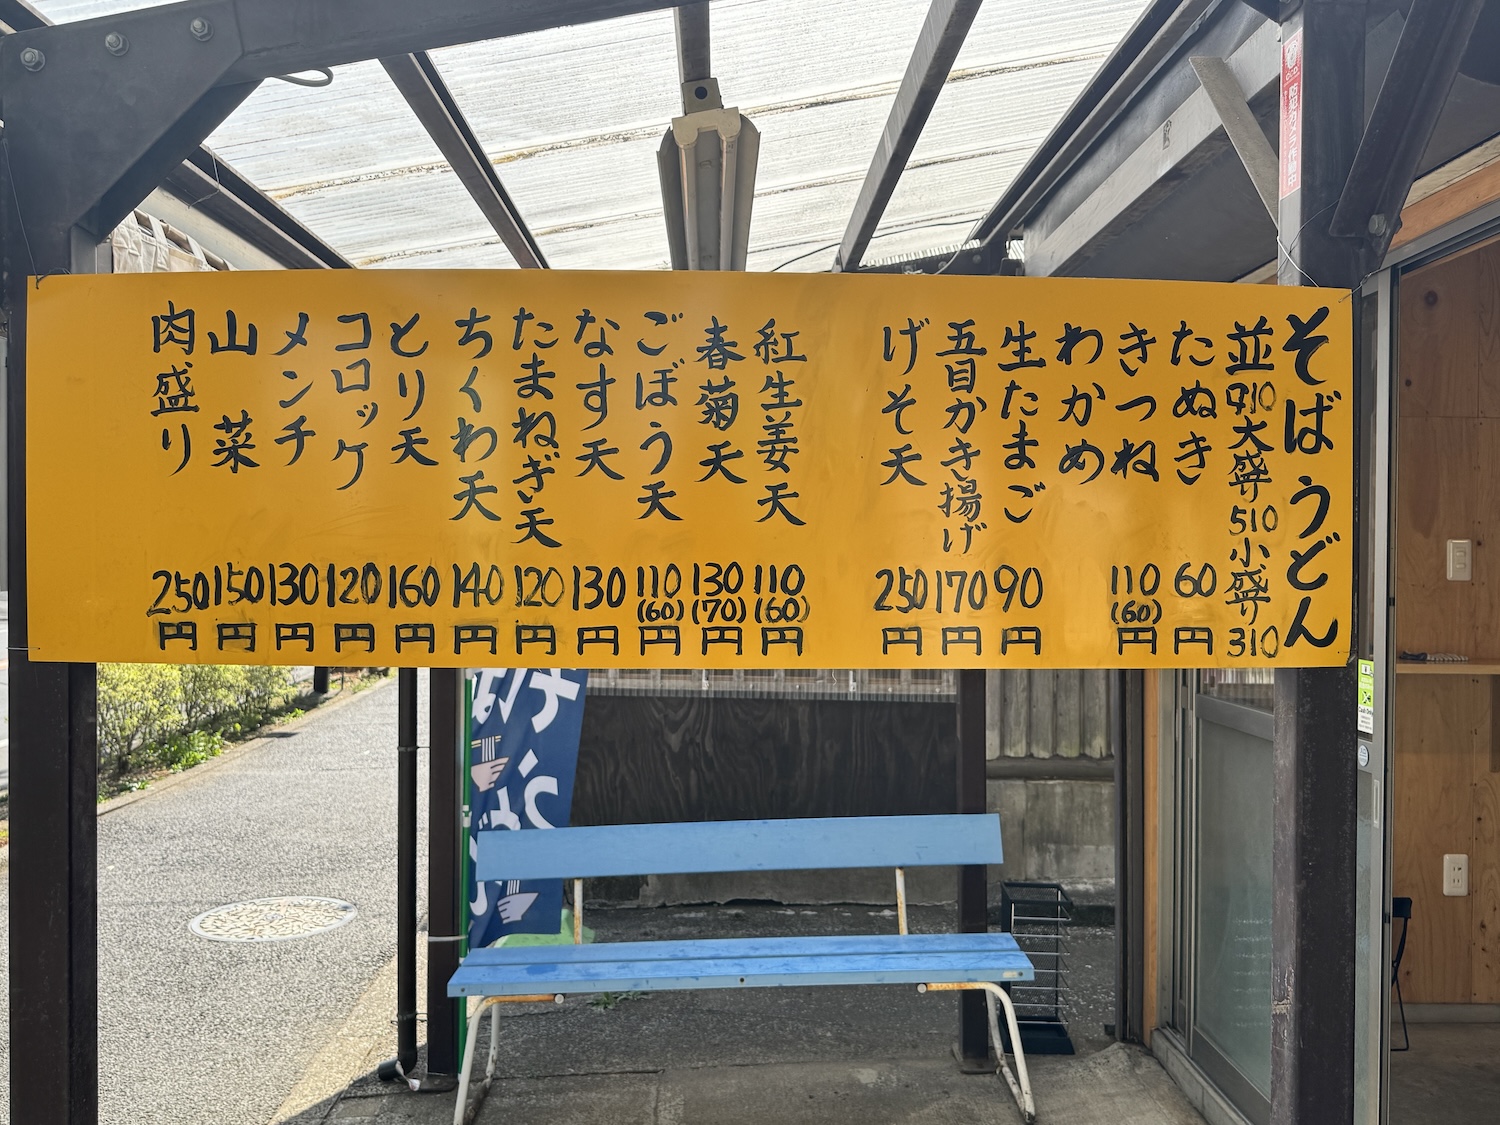 そばうどん
並410大盛り510小盛り310
たぬき 60円
きつね 110(60)円
わかめ
生たまご 90円
五目かき揚げ 170円
げそ天 250円
紅生姜天 110(60)円
春菊天 130(70)円
ごぼう天 110(60)円
なす天 130円
たまねぎ天 120円
ちくわ天 140円
とり天 160円
コロッケ 120円
メンチ 130円
山菜 150円
肉盛り 250円
防犯カメラ作動中
そば
うど